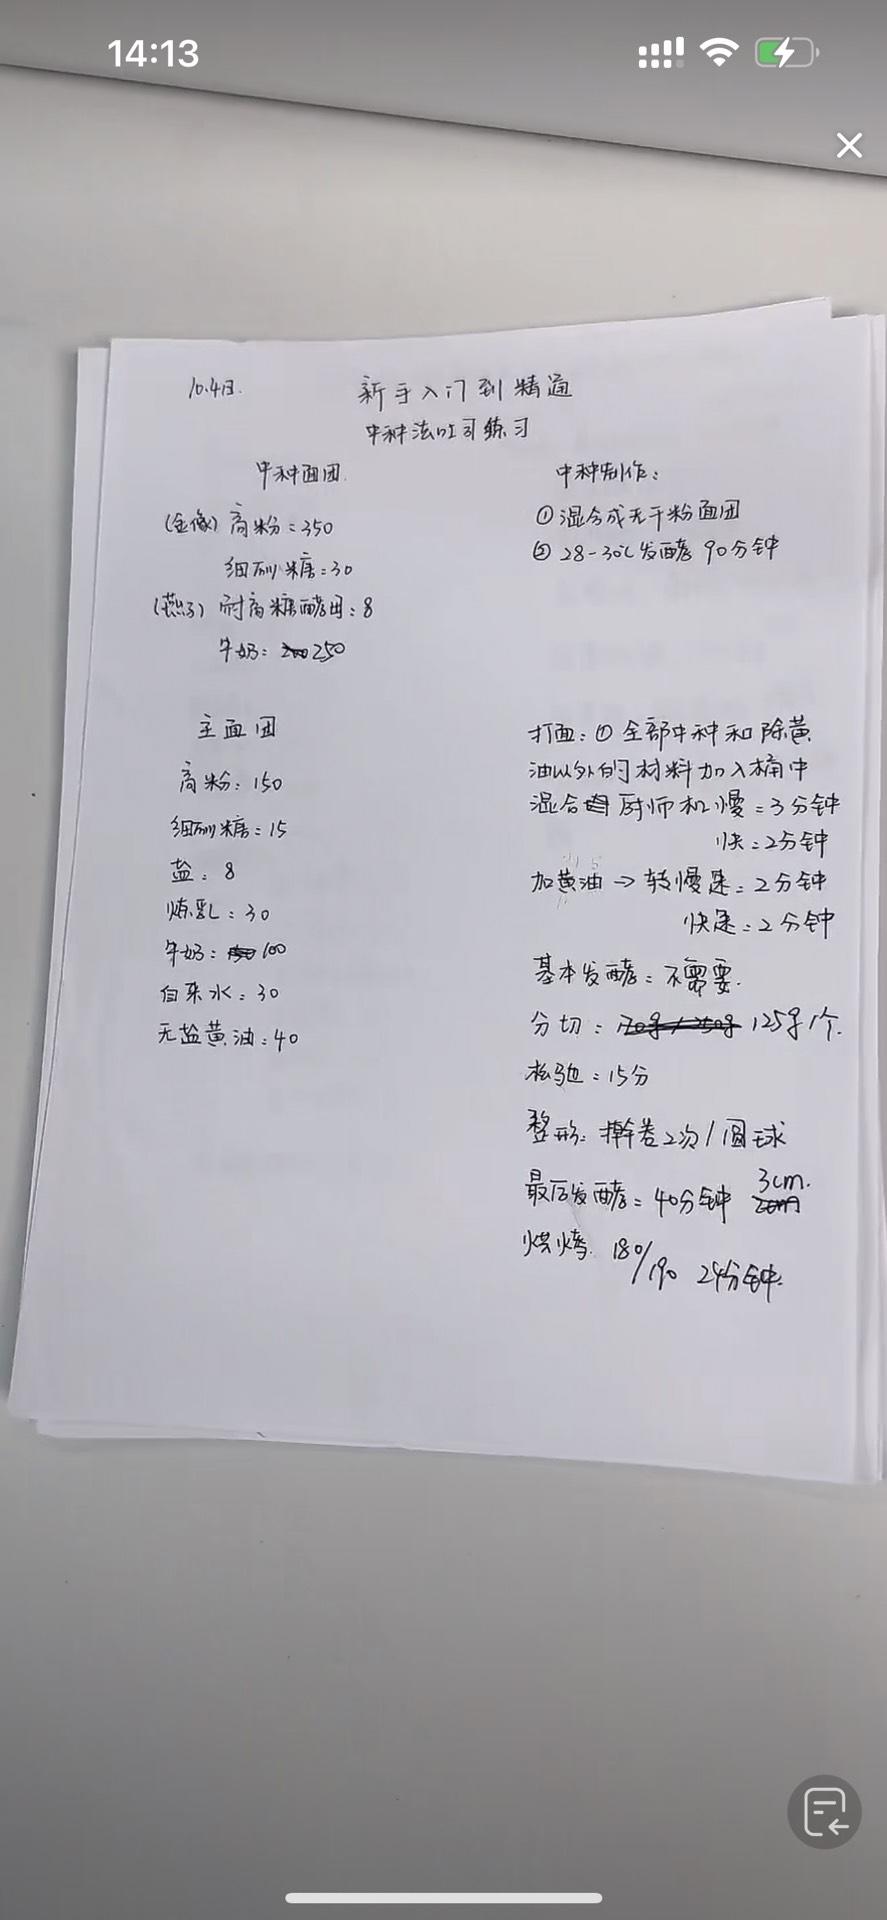 14:13
10.4日.
新手入门到精通
中种法吐司练习
中种面团.
(金像) 高粉:350
细砂糖:30
(燕子) 耐高糖酵母:8
牛奶: 250
中种制作:
① 混合成无干粉面团
② 28-30℃发酵 90分钟
主面团
高粉:150
细砂糖:15
盐:8
炼乳:30
牛奶: 100
自来水:30
无盐黄油:40
打面:① 全部中种和除黄
油以外的材料加入桶中
混合 厨师机慢=3分钟
快=2分钟
加黄油→转慢速=2分钟
快速=2分钟
基本发酵:不需要.
分切: 125g/个.
松弛:15分
整形: 擀卷2次/圆球
最后发酵=40分钟 3cm.
烘烤. 180/190 24分钟.